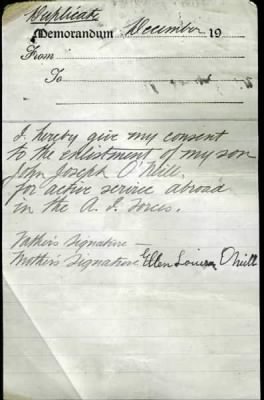 Duplicate
Memorandum December 19
From
To
I hereby give my consent
to the enlistment of my son
John Joseph O'Neill.
for active service abroad
in the A. I. Forces.
Father's Signature —
Mother's Signature Ellen Louisa O'Neill